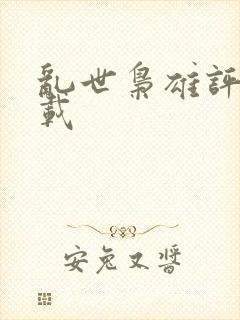 亂世梟雄評
載
安兔又醬